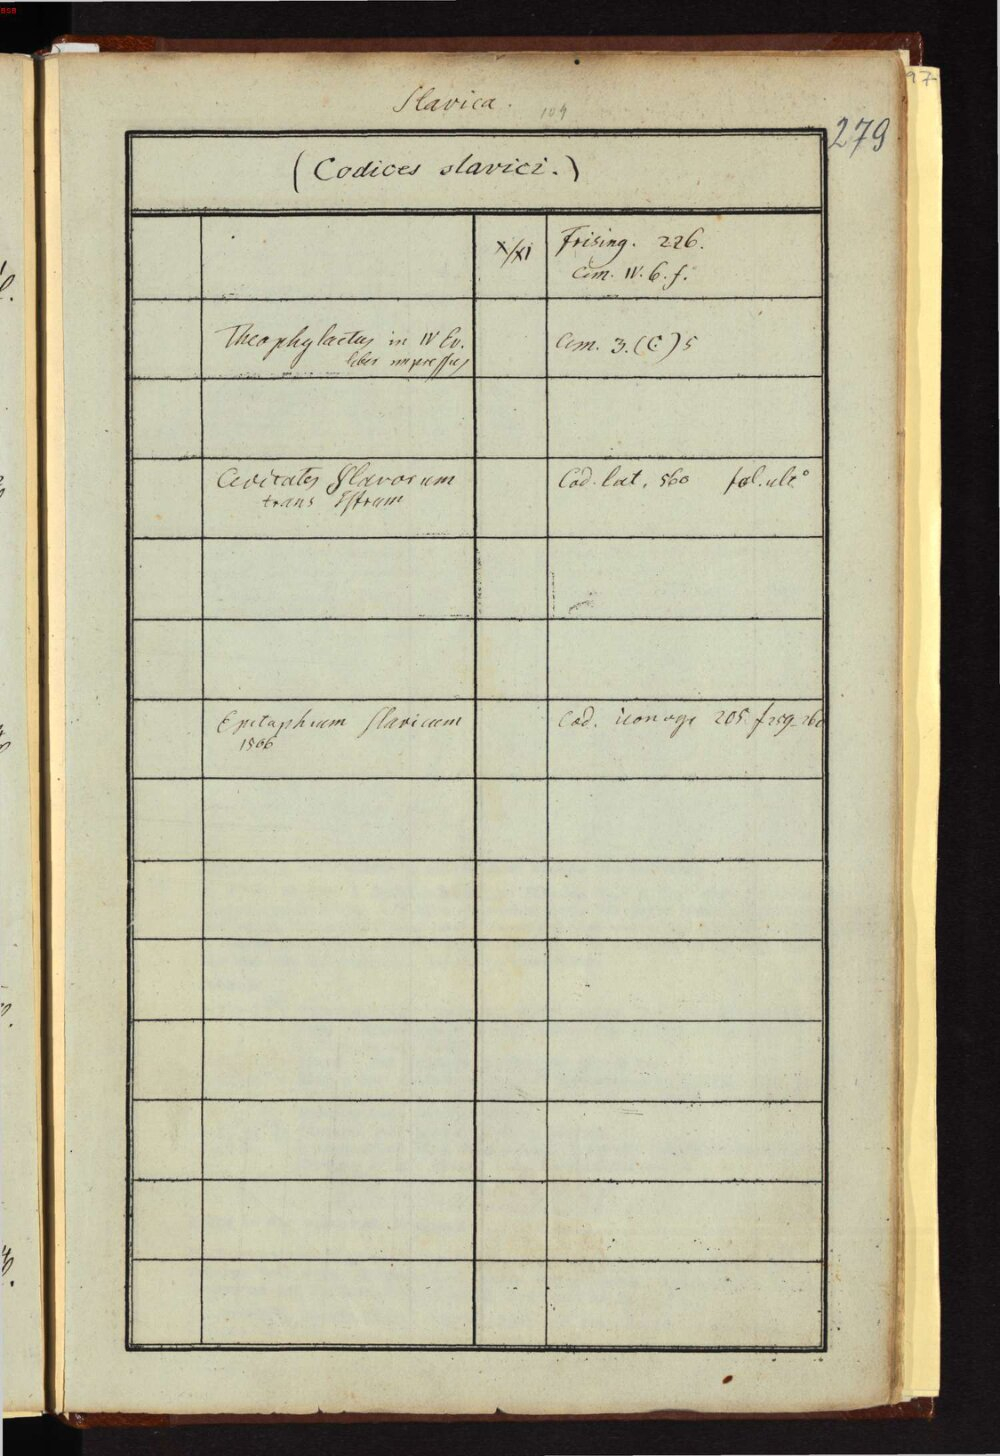 Slavica.
109
279
(Codices slavici.)
X/XI
Frising. 226.
Cim. IV. 6. f.
Theophylactus in IV Ev.
liber impressus
Cim. 3. (C.) 5
Civitates Slavorum
trans Istrum
Cod. lat. 560 fol. ult°
Epitaphium slavicum
1566
Cod. iconogr 205. f 259-260